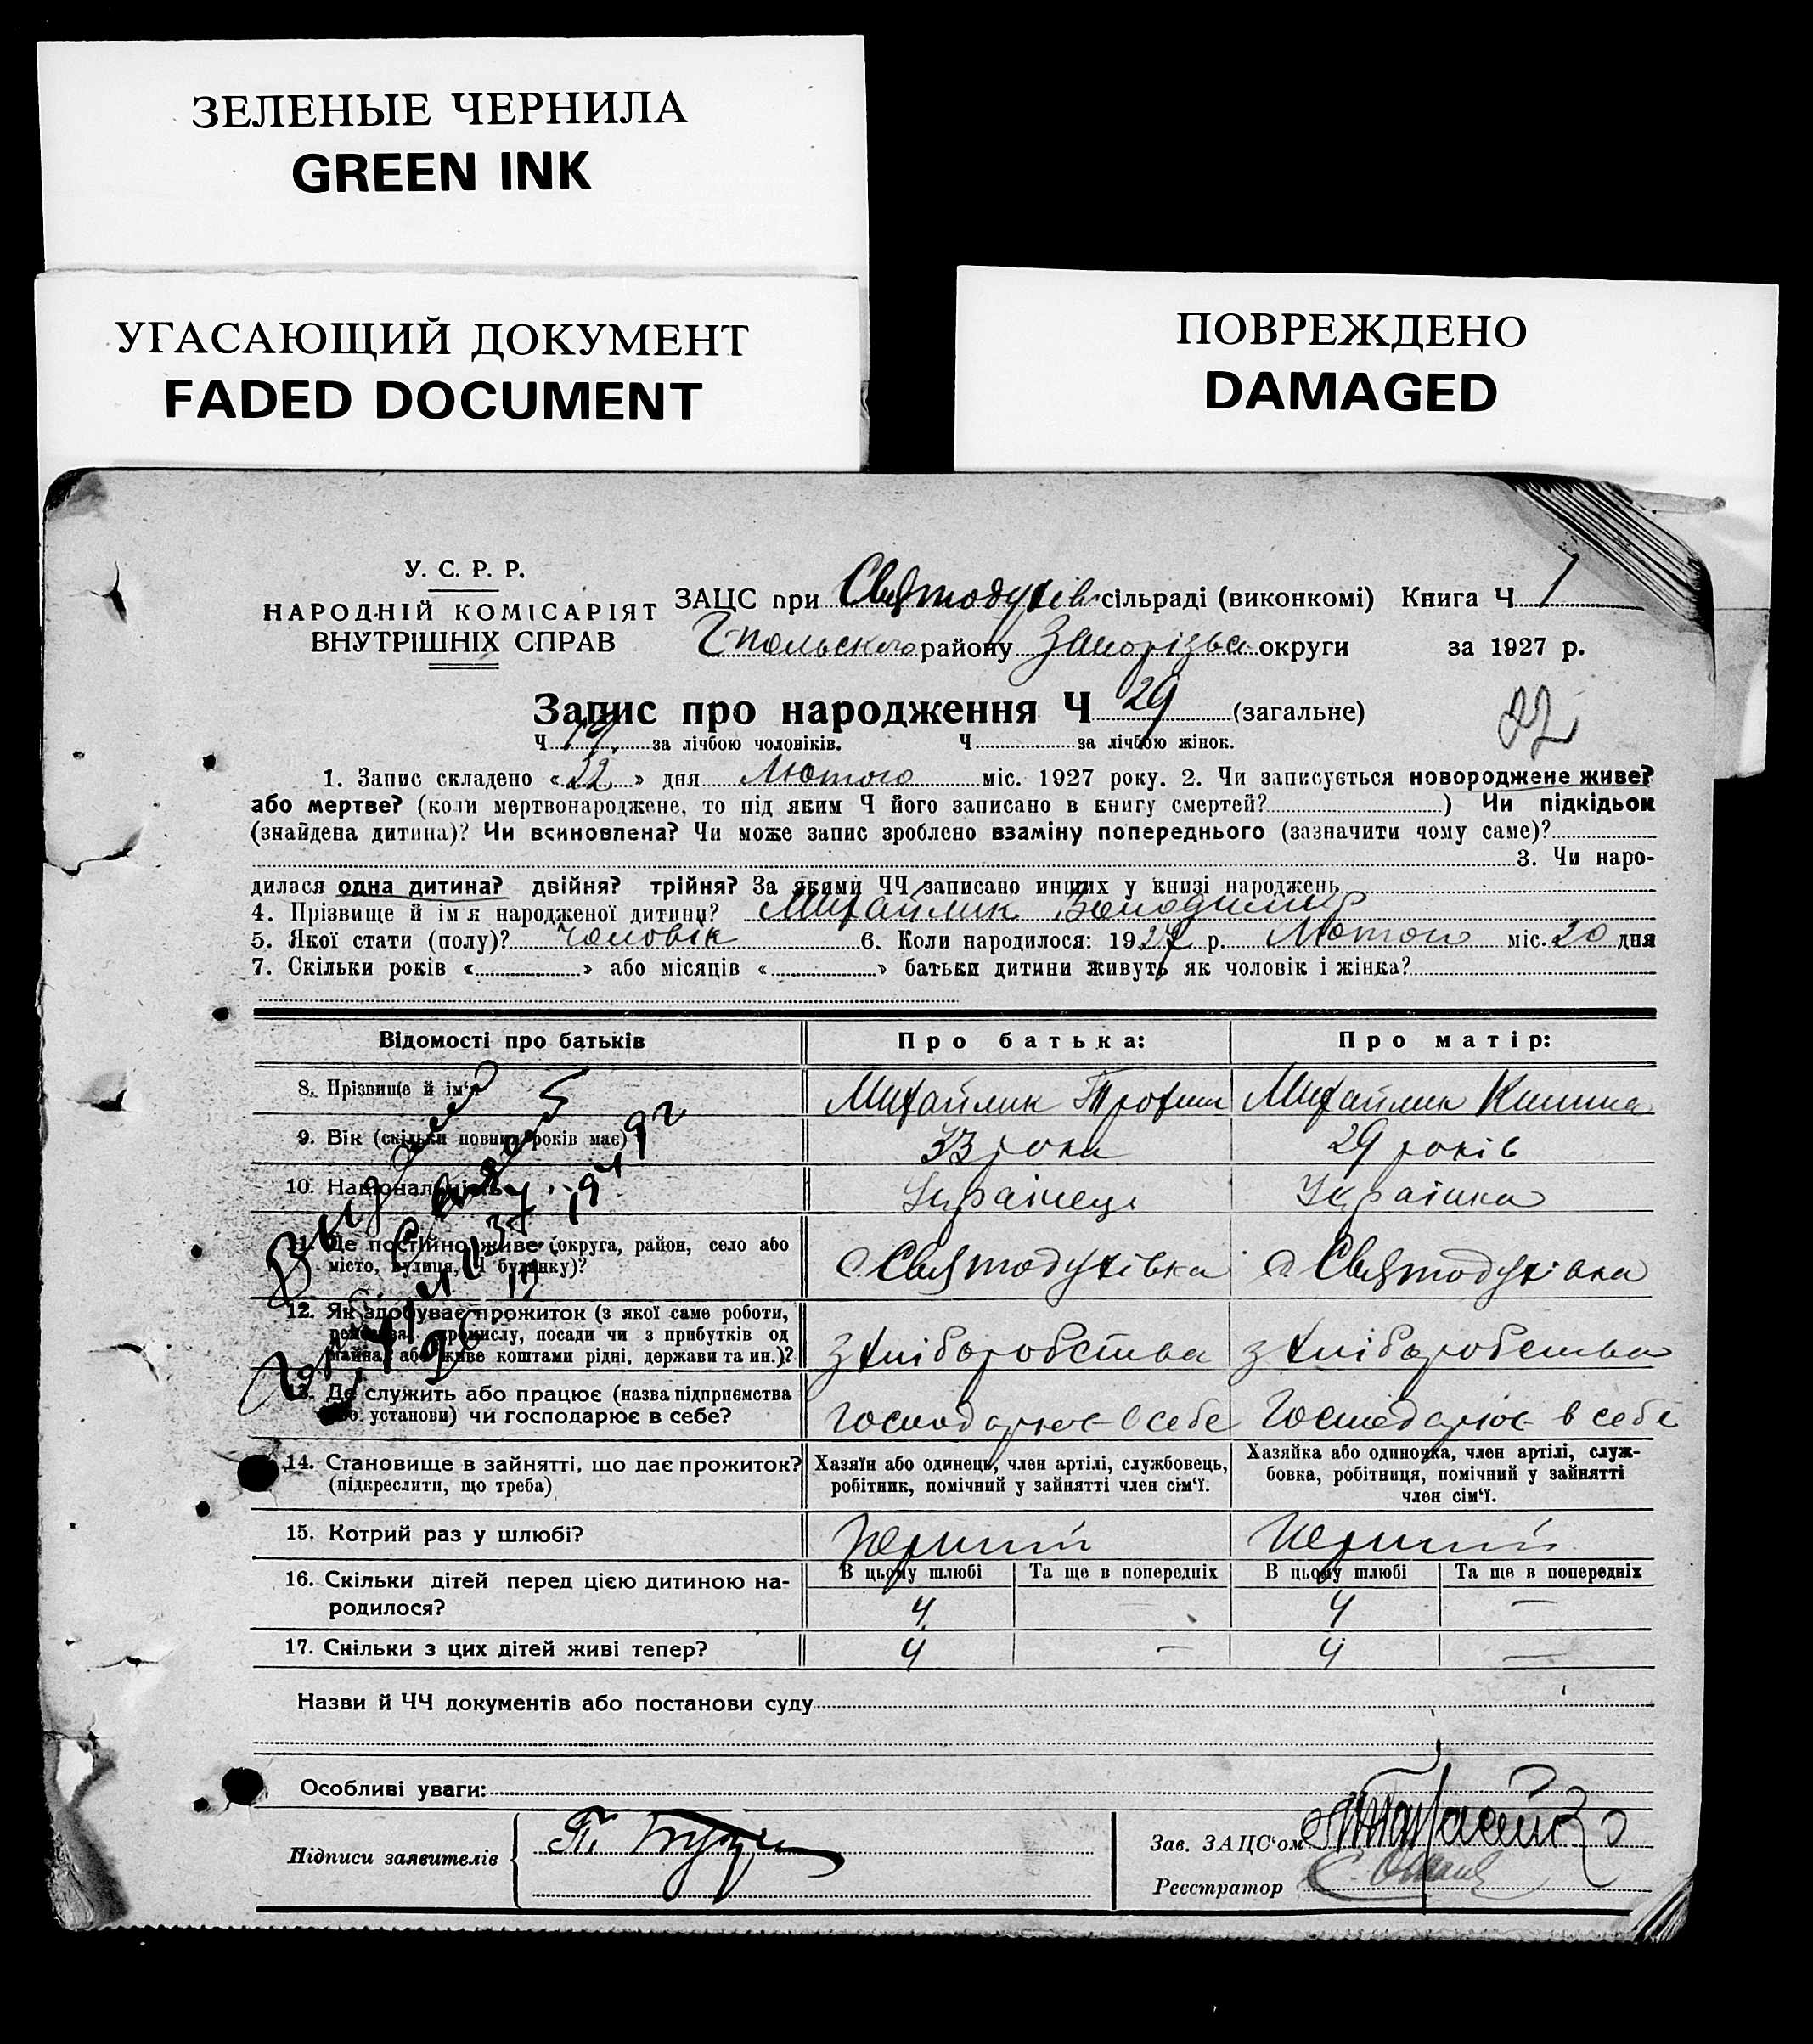 ЗЕЛЕНЫЕ ЧЕРНИЛА
GREEN INK
УГАСАЮЩИЙ ДОКУМЕНТ
FADED DOCUMENT
ПОВРЕЖДЕНО
DAMAGED
У. С. Р. Р.
НАРОДНІЙ КОМІСАРІЯТ
ВНУТРІШНІХ СПРАВ
ЗАЦС при Святодухів сільраді (виконкомі) Книга Ч 1
району Запорізька округи за 1927 р.
Запис про народження Ч 29 (загальне)
22
Ч за лічбою чоловіків. Ч за лічбою жінок.
1. Запис складено «22» дня Лютого міс. 1927 року. 2. Чи записується новороджене живе?
або мертве? (коли мертвонароджене, то під яким Ч його записано в книгу смертей? ) Чи підкідьок
(знайдена дитина)? Чи всиновлена? Чи може запис зроблено взаміну попереднього (зазначити чому саме)?
3. Чи наро-
дилася одна дитина? двійня? трійня? За якими ЧЧ записано инших у книзі народжень
4. Прізвище й ім'я народженої дитини? Михайлик Володимир
5. Якої стати (полу)? чоловік 6. Коли народилося: 1927 р. Лютого міс. 20 дня
7. Скільки років « » або місяців « » батьки дитини живуть як чоловік і жінка?
Відомості про батьків Про батька: Про матір:
8. Прізвище й ім'я Михайлик Трофим Михайлик Килина
9. Вік (скільки повних років має) 33 роки 29 років
10. Національність Українець Українка
11. Де постійно живе (округа, район, село або
місто, вулиця, Ч будинку)? с Святодухівка с Святодухівка
12. Як здобуває прожиток (з якої саме роботи,
ремества, промислу, посади чи з прибутків од
майна, або живе коштами рідні, держави та ин.)? з хліборобства з хліборобства
13. Де служить або працює (назва підприємства
або установи) чи господарює в себе? Господарює в себе Господарює в себе
14. Становище в зайнятті, що дає прожиток?
(підкреслити, що треба)
Хазяїн або одинець, член артілі, службовець,
робітник, помічний у зайнятті член сім'ї.
Хазяйка або одиночка, член артілі, служ-
бовка, робітниця, помічний у зайнятті
член сім'ї.
15. Котрий раз у шлюбі? Перший Перший
16. Скільки дітей перед цією дитиною на-
родилося?
В цьому шлюбі Та ще в попередніх В цьому шлюбі Та ще в попередніх
4 — 4 —
17. Скільки з цих дітей живі тепер? 4 — 4 —
Назви й ЧЧ документів або постанови суду
Особливі уваги:
Підписи заявителів
Зав. ЗАЦС'ом
Реєстратор